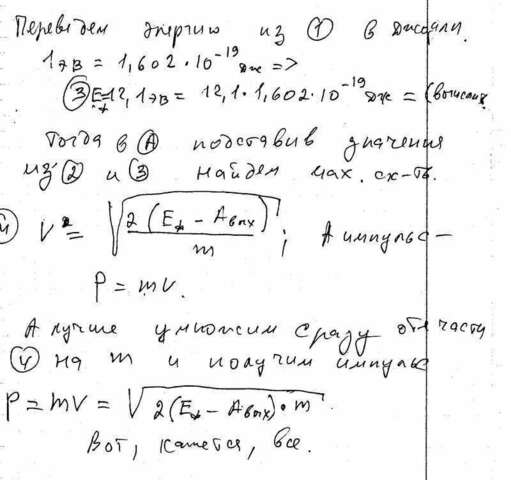 Переведем энергию из ① в джоули.
1эв = 1,602·10⁻¹⁹ дж =>
③ Eф=12,1эв = 12,1·1,602·10⁻¹⁹ дж = (
Тогда в Ⓐ подставив значения
из ② и ③ найдем мах. ск-ть.
④ V = √(2(Eф - Aвых)/m); А импульс –
P = mV.
А лучше умножим сразу обе части
④ на m и получим импульс
P = mV = √(2(Eф - Aвых)·m).
Вот, кажется, все.